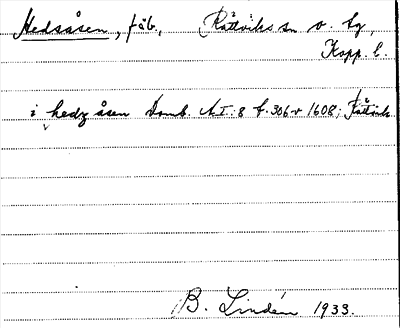 Hedsåsen, fäb., Rättviks sn o. tg,
Kopp. l.
i hedz åsen Domb. A I:8 f. 306 v 1608; Rätvik
B. Lindén 1933.